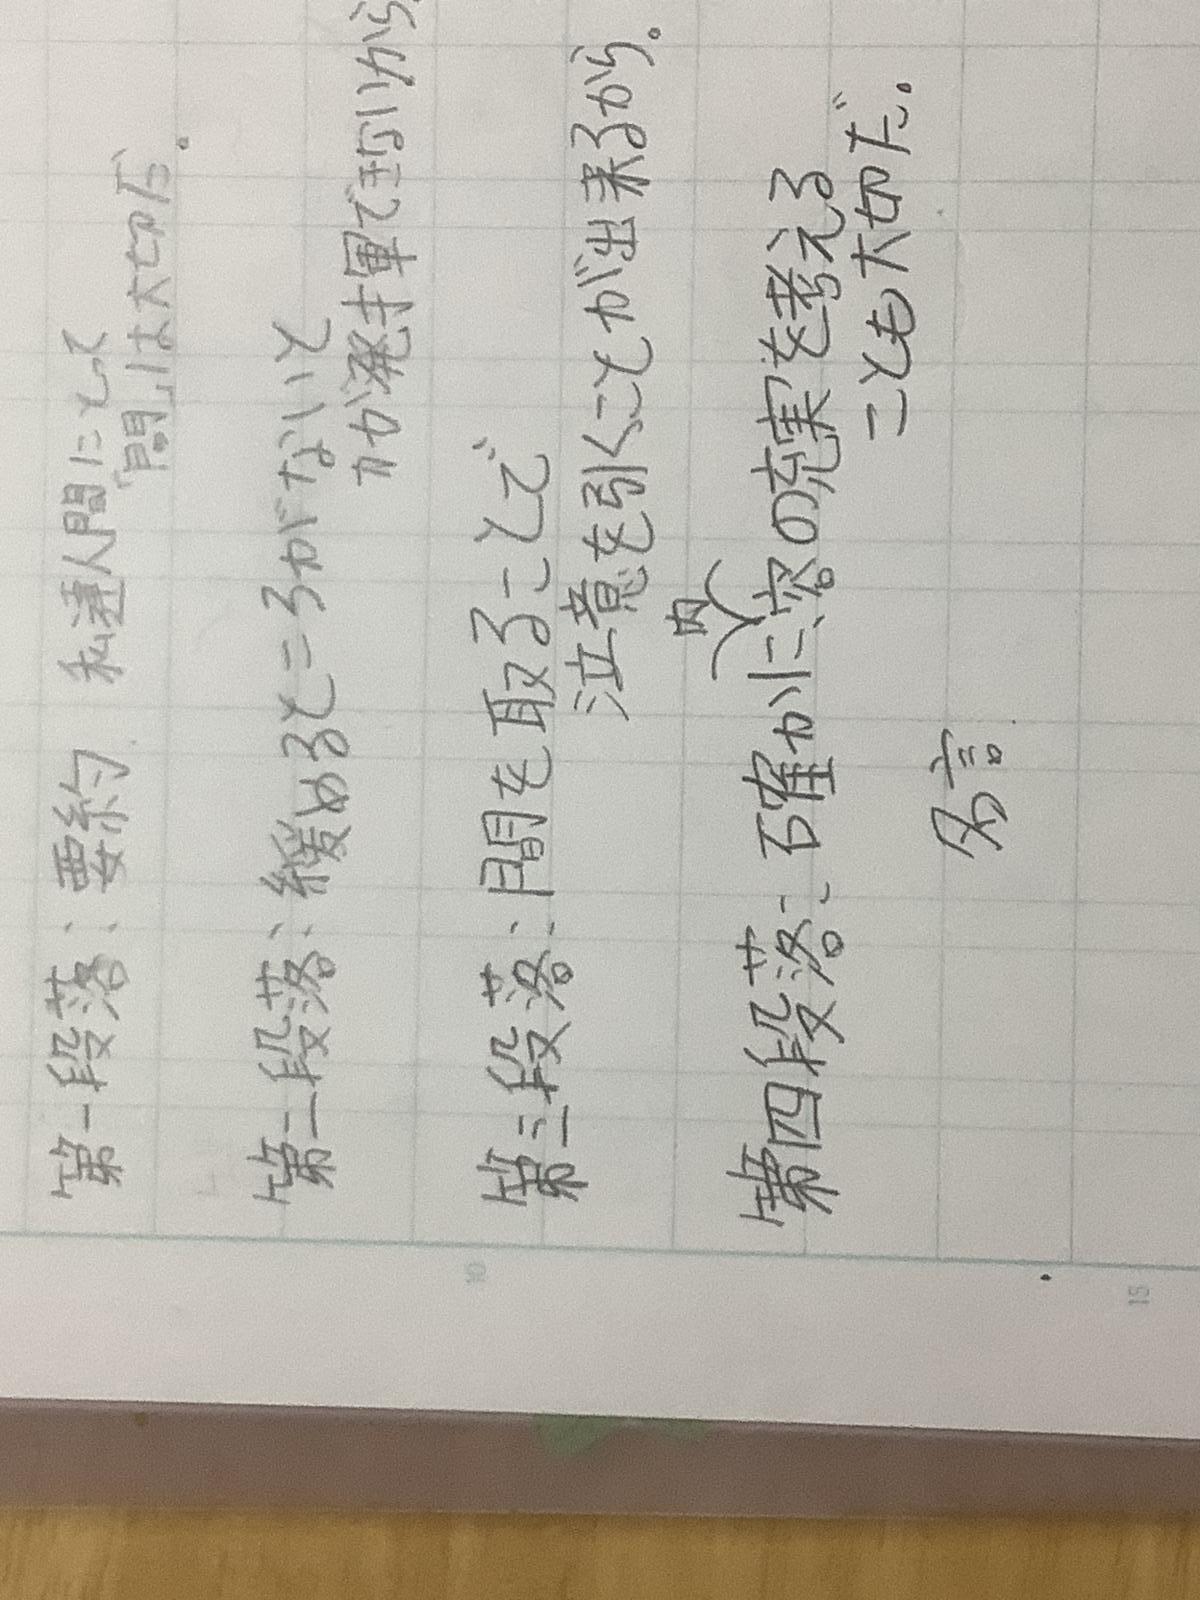 第一段落:要約 私達人間にとって
「間」は大切だ。
第二段落:緩めるところがないと
力が発揮できないから
第三段落:間を取ることで
注意を引くことが出来るから。
第四段落:確かに、内容の充実を考える
ことも大切だ。
名言
10
15